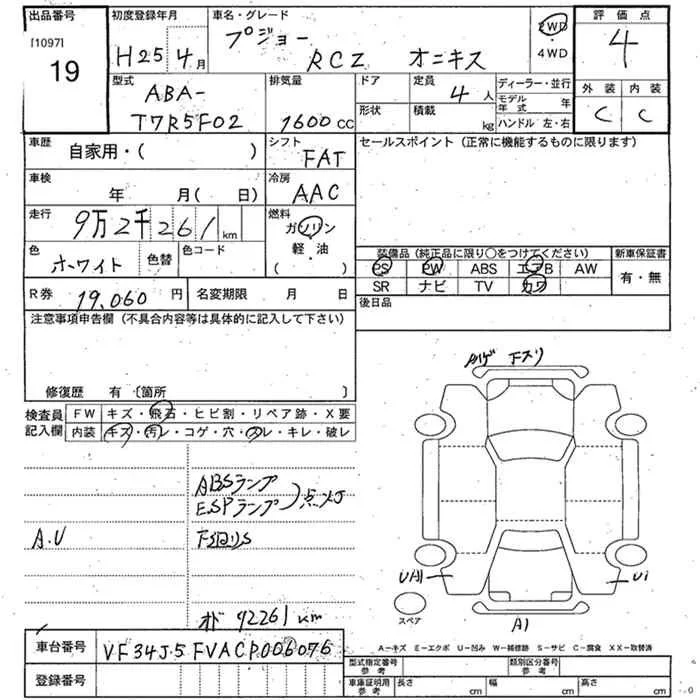 出品番号
[1097]
19
初度登録年月
H25 4月
車名・グレード
プジョー RCZ オニキス
2WD
・4WD
評価点
4
外装 内装
C C
型式
ABA-
T7R5F02
排気量
1600cc
ドア
形状
定員
4人
積載
kg
ディーラー・並行
モデル年式 年
ハンドル 左・右
車歴
自家用・( )
シフト
FAT
セールスポイント (正常に機能するものに限ります)
車検
年 月( 日)
冷房
AAC
走行
9万2千261km
燃料
ガソリン
軽・油
( )
色
ホーワイト
色替
色コード
装備品 (純正品に限り○をつけてください)
PS PW ABS エアB AW
SR ナビ TV カワ
新車保証書
有・無
R券 19,060円
名変期限 月 日
後日品
注意事項申告欄 (不具合内容等は具体的に記入して下さい)
修復歴 有 〔箇所 〕
検査員記入欄
FW キズ・飛石・ヒビ割・リペア跡・X要
内装 キズ・汚レ・コゲ・穴・スレ・キレ・破レ
ABSランプ
ESPランプ 点灯
A.U
オド 92261km
UA11
U1
A1
スペア
A-キズ E-エクボ U-凹み W-補修跡 S-サビ C-腐食 XX-取替済
車台番号
VF34J5FVACP006076
登録番号
型式指定番号
参考
類別区分番号
参考
車庫証明用
参考
長さ cm 幅 cm 高さ cm